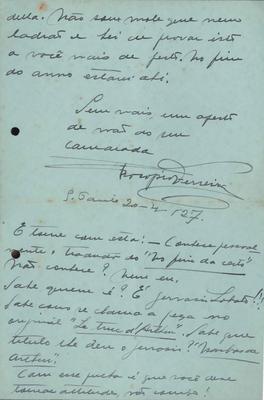 della. Não sou mole que nem
ladrão e hei de provar isto
a você mais de perto. No fim
do anno estarei ahi.
Sem mais, um aperto
de mão do seu
camarada
Procopio Ferreira
S. Paulo 20-4-927.
E tome com esta: — Conhece
o traductor do "No fim da
Não conhece? Nem eu.
Sabe quem é? É Gervasio Lobato!!
Sabe como se chama a peça no
original? "Le truc d'Arthur". Sabe que
titulo lhe deu o Gervasio? "
Arthur".
Com esse é que você deve
tomar attitude,